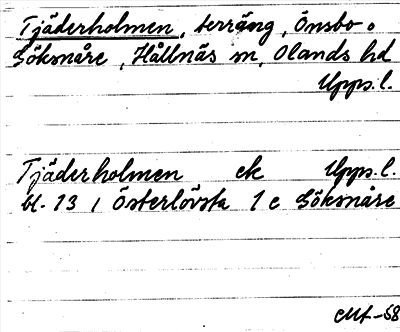 Tjäderholmen, terräng, Önsbo o
Göksnåre, Hållnäs sn, Olands hd
Upps. l.
Tjäderholmen ek Upps. l.
bl. 13 1 Österlövsta 1 c Göksnåre
-58